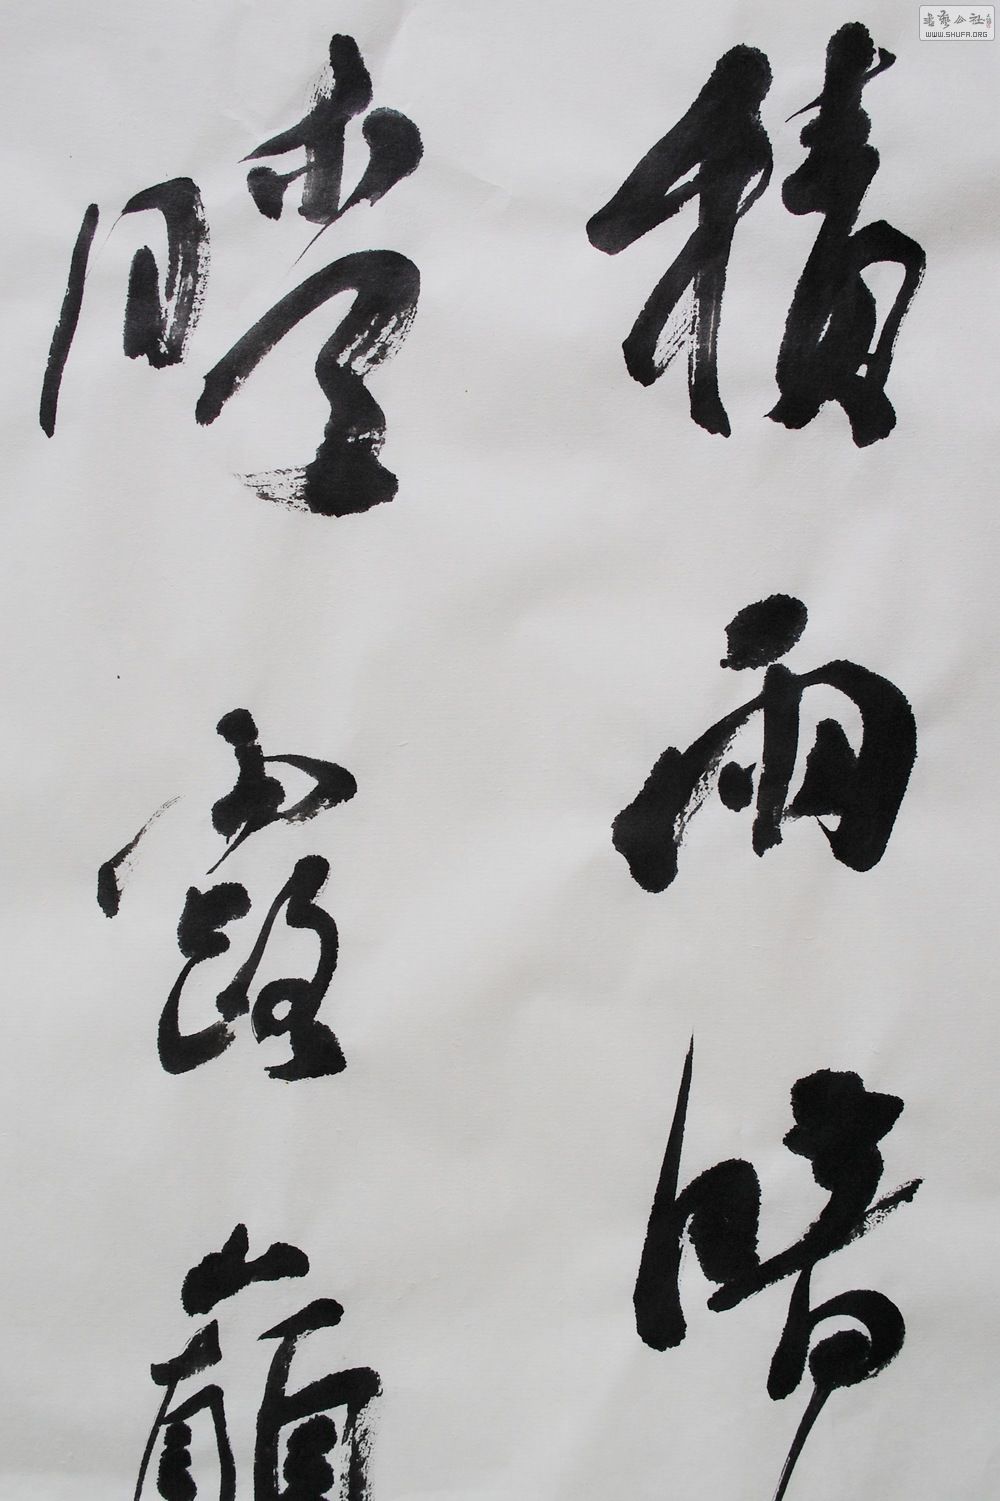 書藝公社
WWW.SHUFA.ORG
積雨晴
露巔